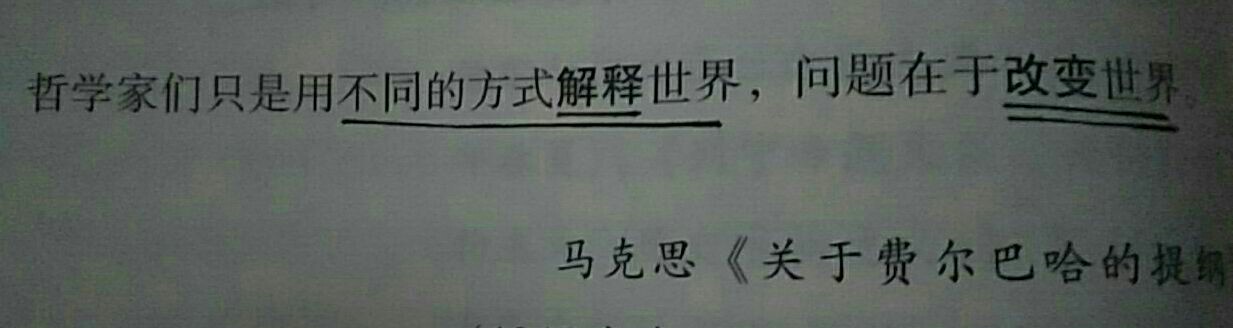 哲学家们只是用不同的方式解释世界，问题在于改变世界。
马克思《关于费尔巴哈的提纲